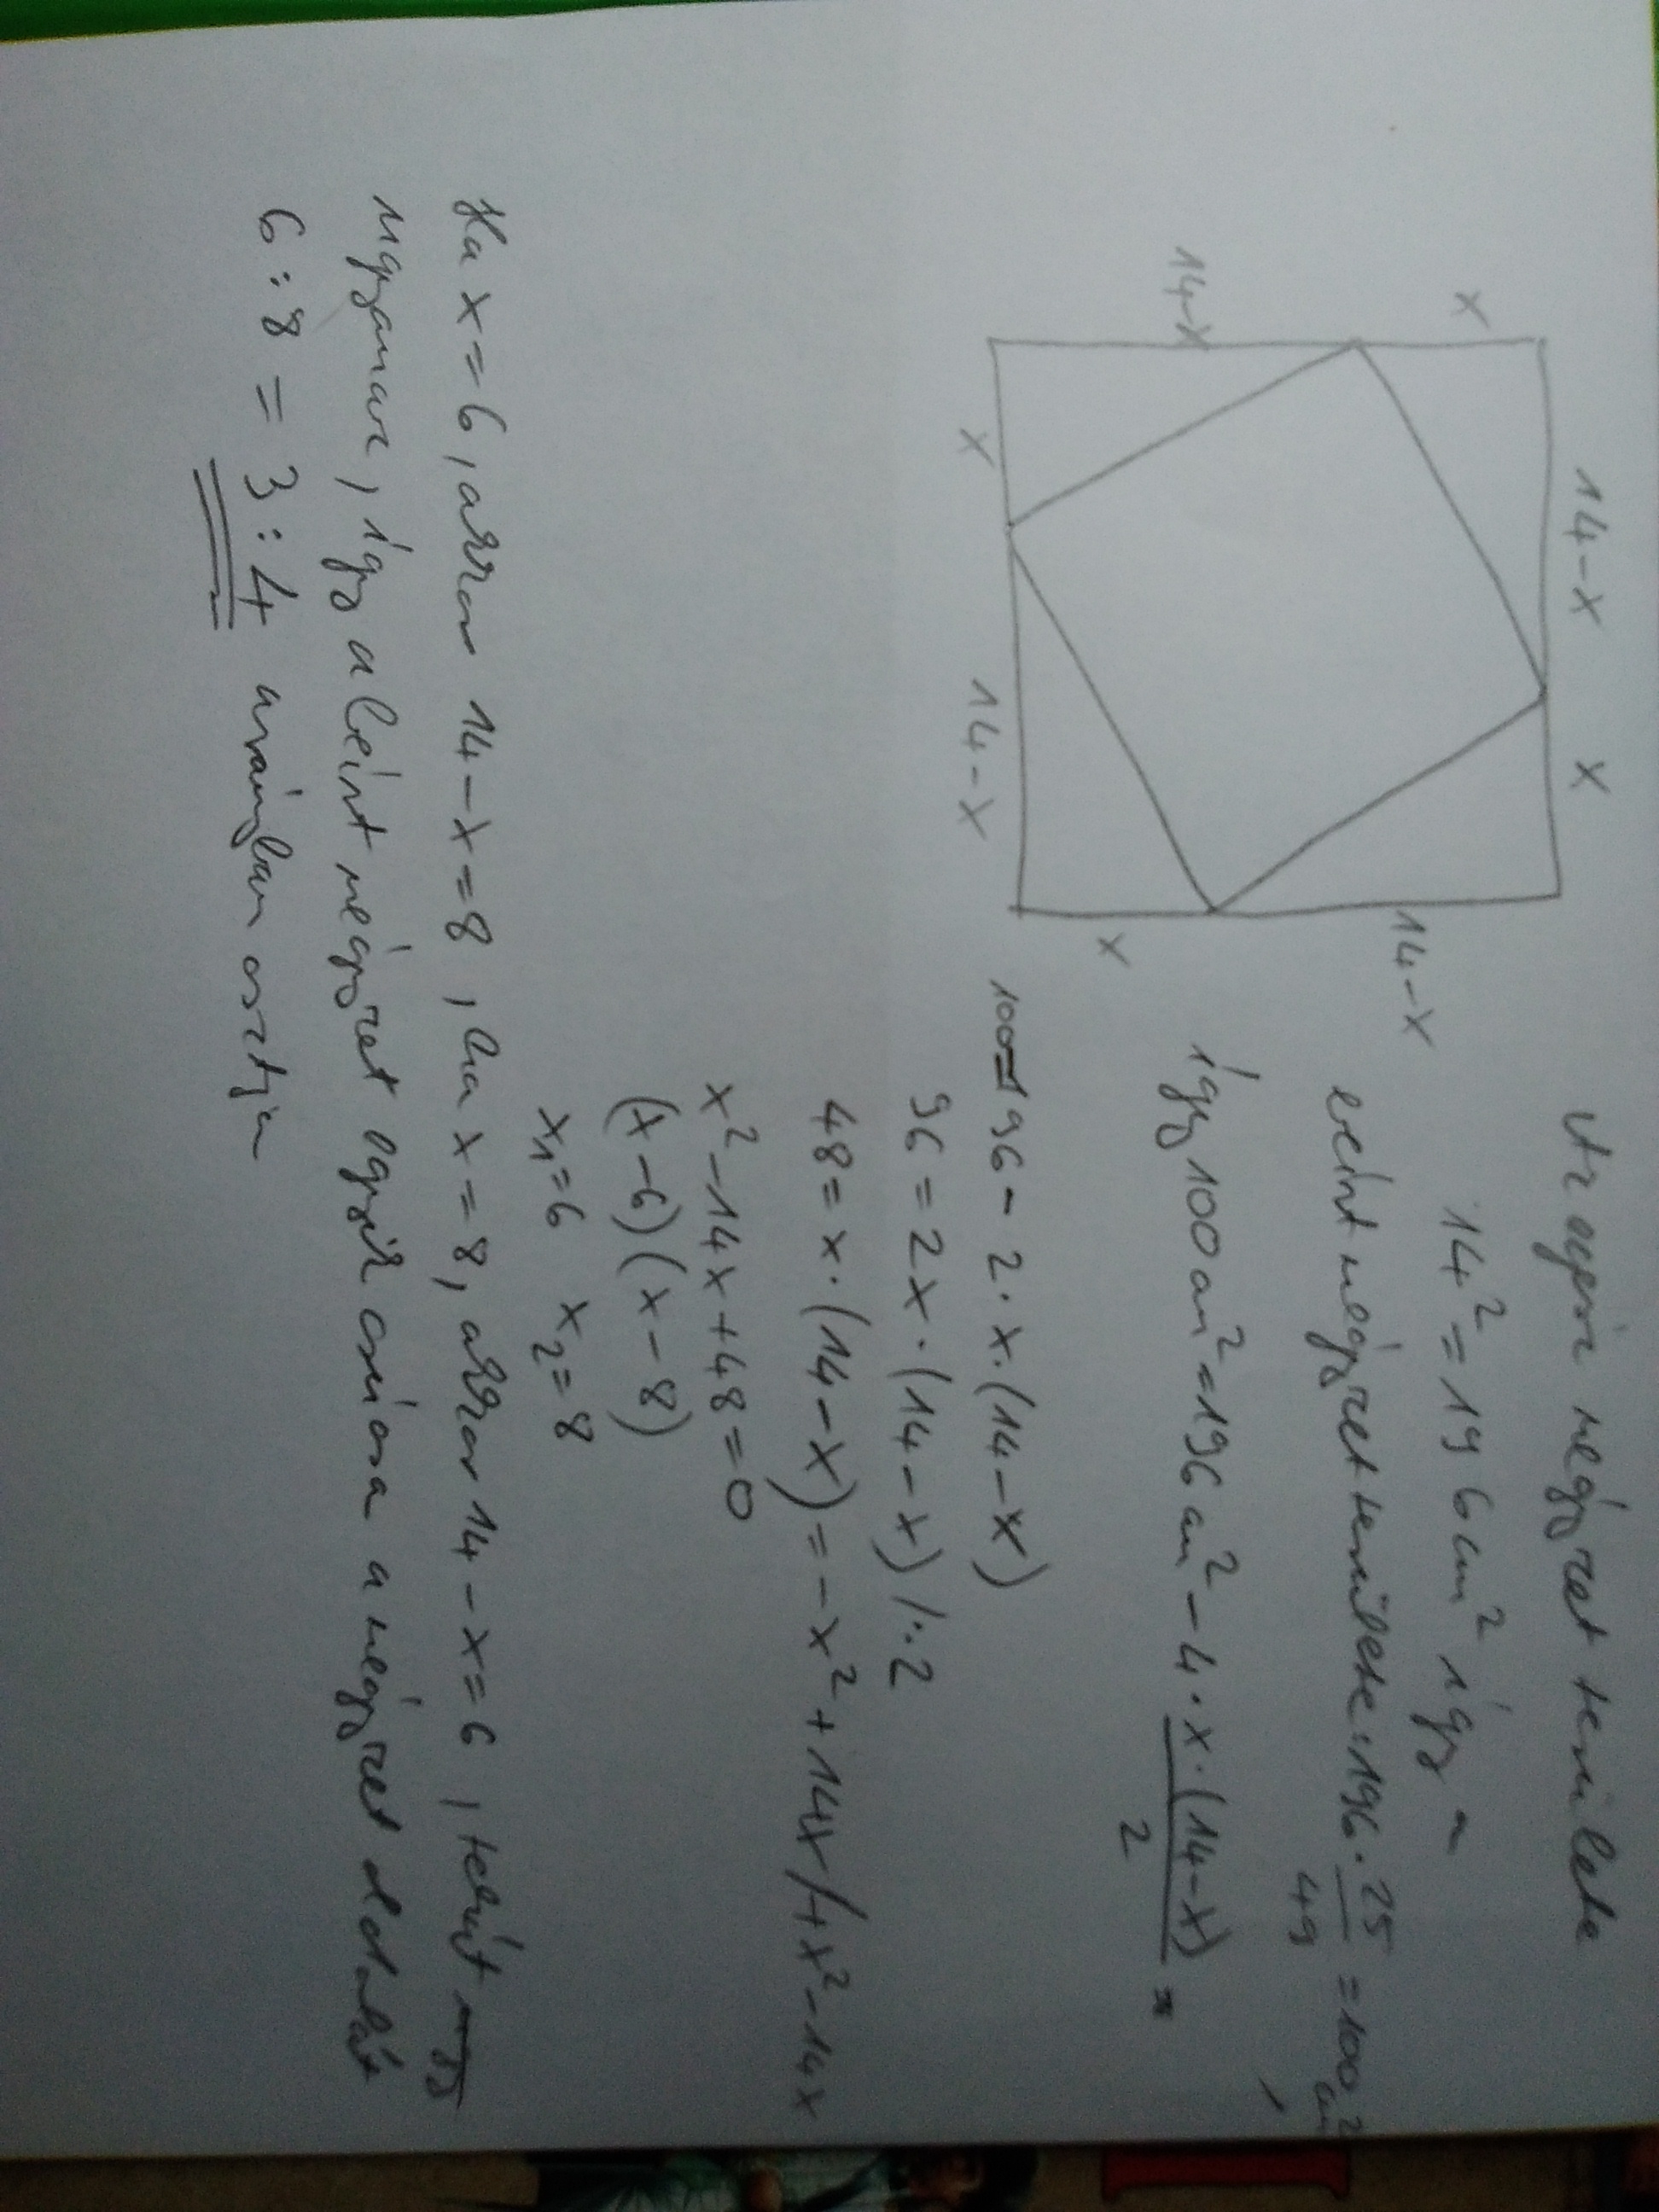 x
14-x
14-x
x
x
14-x
14-x
x
Az egész négyzet területe
14² = 196 cm² így a
beírt négyzet területe: 196 · 25/49 = 100 cm²,
így 100 cm² = 196 cm² - 4 · x·(14-x)/2 =
100=196 - 2 · x·(14-x)
96 = 2x · (14-x) /:2
48 = x · (14-x) = -x² + 14x /+x² - 14x
x² - 14x + 48 = 0
(x-6)(x-8)
x₁=6 x₂=8
Ha x=6, akkor 14-x=8, ha x=8, akkor 14-x=6, tehát
ugyanaz, így a beírt négyzet egyik csúcsa a négyzet oldalát
6:8 = 3:4 arányban osztja